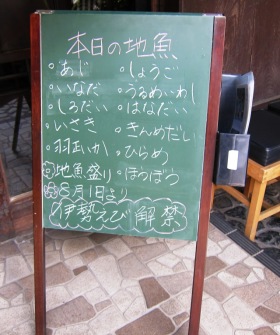 本日の地魚
・あじ ・しょうご
・いなだ ・うるめいわし
・しろだい ・はなだい
・いさき ・きんめだい
・羽あいか ・ひらめ
地魚盛り ・ほうぼう
8月1日より
伊勢えび解禁